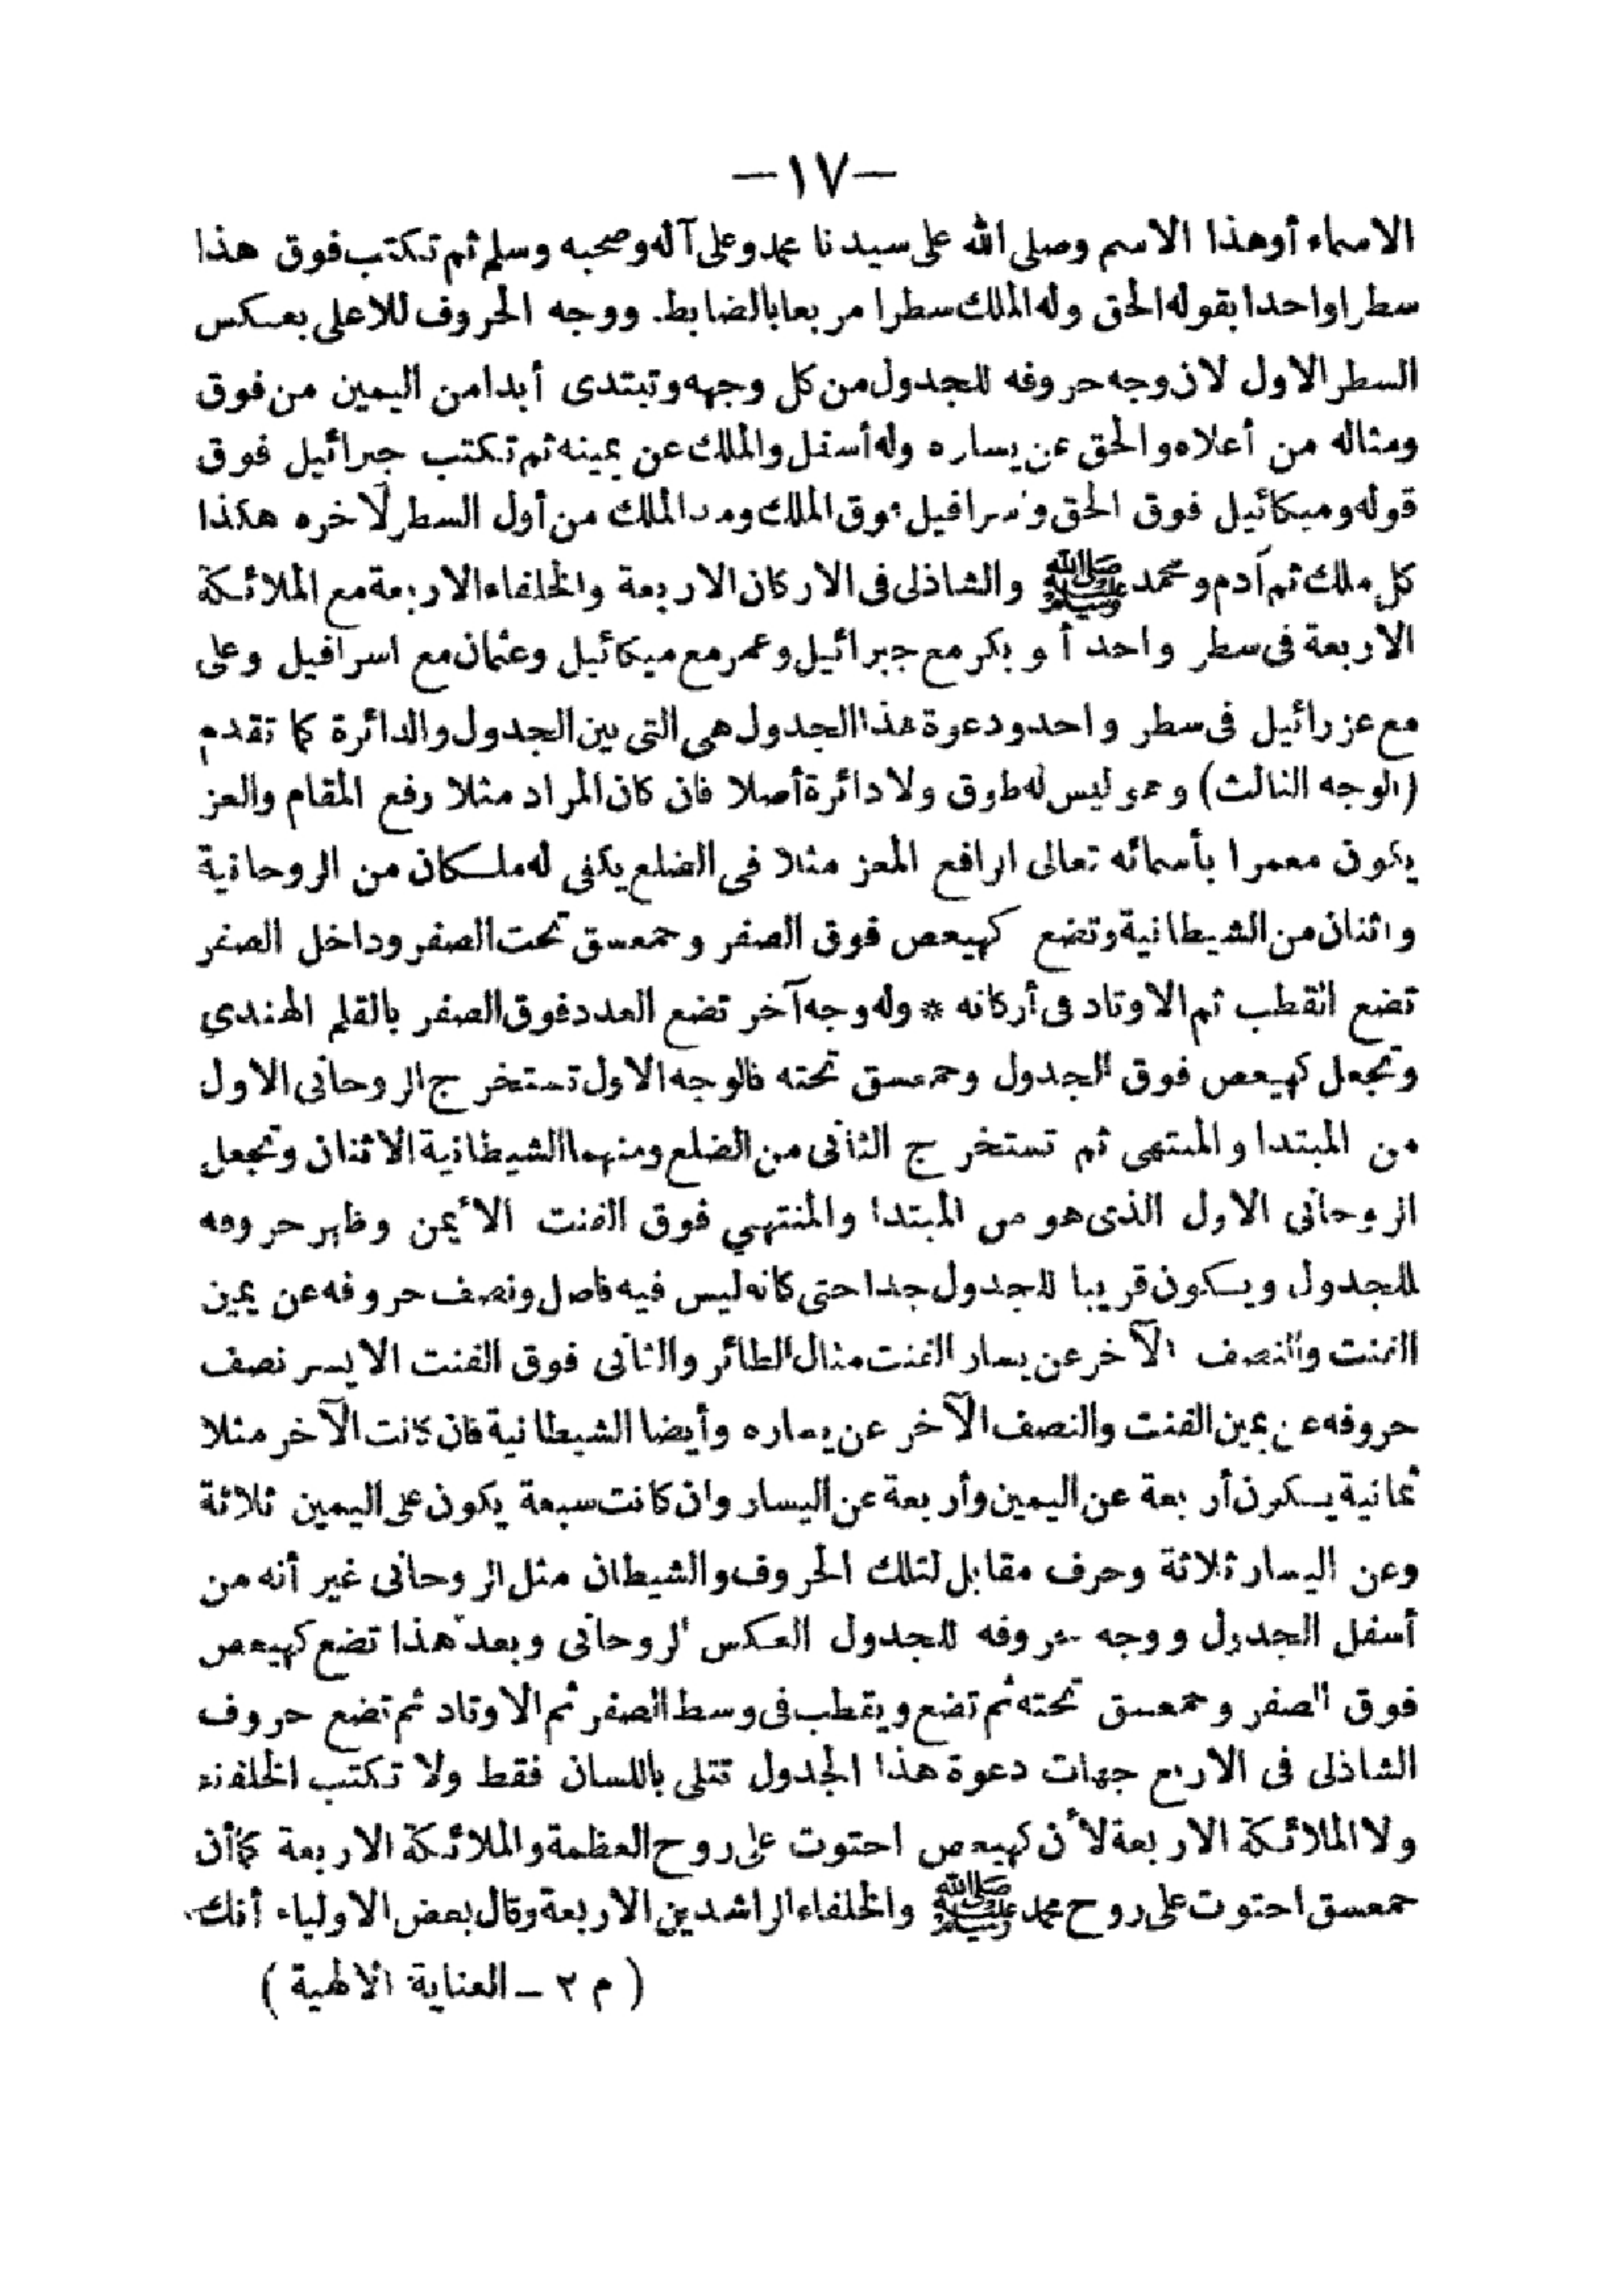 —١٧—
الاسماء أوهذا الاسم وصلى الله على سيدنا محمد وعلى آله وصحبه وسلم ثم تكتب فوق هذا
سطرا واحدا بقوله الحق وله الملك سطرا مربعا بالضابط. ووجه الحروف للاعلى بعكس
السطر الاول لان وجه حروفه للجدول من كل وجهه وتبتدى أبدا من اليمين من فوق
ومثاله من أعلاه والحق عن يساره وله أسفل والملك عن يمينه ثم تكتب جبرائيل فوق
قوله وميكائيل فوق الحق واسرافيل فوق الملك ومد الملك من أول السطر لآخره هكذا
كل ملك ثم آدم ومحمد ﷺ والشاذلى فى الاركان الاربعة والخلفاء الاربعة مع الملائكة
الاربعة فى سطر واحد أ و بكر مع جبرائيل وعمر مع ميكائيل وعثمان مع اسرافيل وعلى
مع عزرائيل فى سطر واحد ودعوة هذا الجدول هى التى بين الجدول والدائرة كما تقدم
(الوجه الثالث) وهو ليس له طوق ولا دائرة أصلا فان كان المراد مثلا رفع المقام والعز
يكون معمرا بأسمائه تعالى الرافع المعز مثلا فى الضلع يكفى له ملكان من الروحانية
واثنان من الشيطانية وتضع كهيعص فوق الصفر وحمعسق تحت الصفر وداخل الصفر
تضع القطب ثم الاوتاد فى أركانه * وله وجه آخر تضع العدد فوق الصفر بالقلم الهندي
وتجعل كهيعص فوق الجدول وحمعسق تحته فالوجه الاول تستخرج الروحانى الاول
من المبتدا والمنتهى ثم تستخرج الثانى من الضلع ومنهما الشيطانية الاثنان وتجعل
الروحانى الاول الذى هو من المبتدا والمنتهي فوق الفنت الأيمن وظاهر حروفه
للجدول ويكون قريبا للجدول جدا حتى كانه ليس فيه فاصل ونصف حروفه عن يمين
الفنت والنصف الآخر عن يسار الفنت مثال الطائر والثانى فوق الفنت الايسر نصف
حروفه عن يمين الفنت والنصف الآخر عن يساره وأيضا الشيطانية فان كانت الآخر مثلا
ثمانية يكون أربعة عن اليمين وأربعة عن اليسار وان كانت سبعة يكون على اليمين ثلاثة
وعن اليسار ثلاثة وحرف مقابل لتلك الحروف والشيطان مثل الروحانى غير أنه من
أسفل الجدول ووجه حروفه للجدول العكس الروحانى وبعد هذا تضع كهيعص
فوق الصفر وحمعسق تحته ثم تضع ويقطب فى وسط الصفر ثم الاوتاد ثم تضع حروف
الشاذلى فى الاربع جهات دعوة هذا الجدول تتلى باللسان فقط ولا تكتب الخلفاء
ولا الملائكة الاربعة لأن كهيعص احتوت على روح العظمة والملائكة الاربعة كما أن
حمعسق احتوت على روح محمد ﷺ والخلفاء الراشدين الاربعة وقال بعض الاولياء أنك
( م ٢ ـ العناية الالهية )